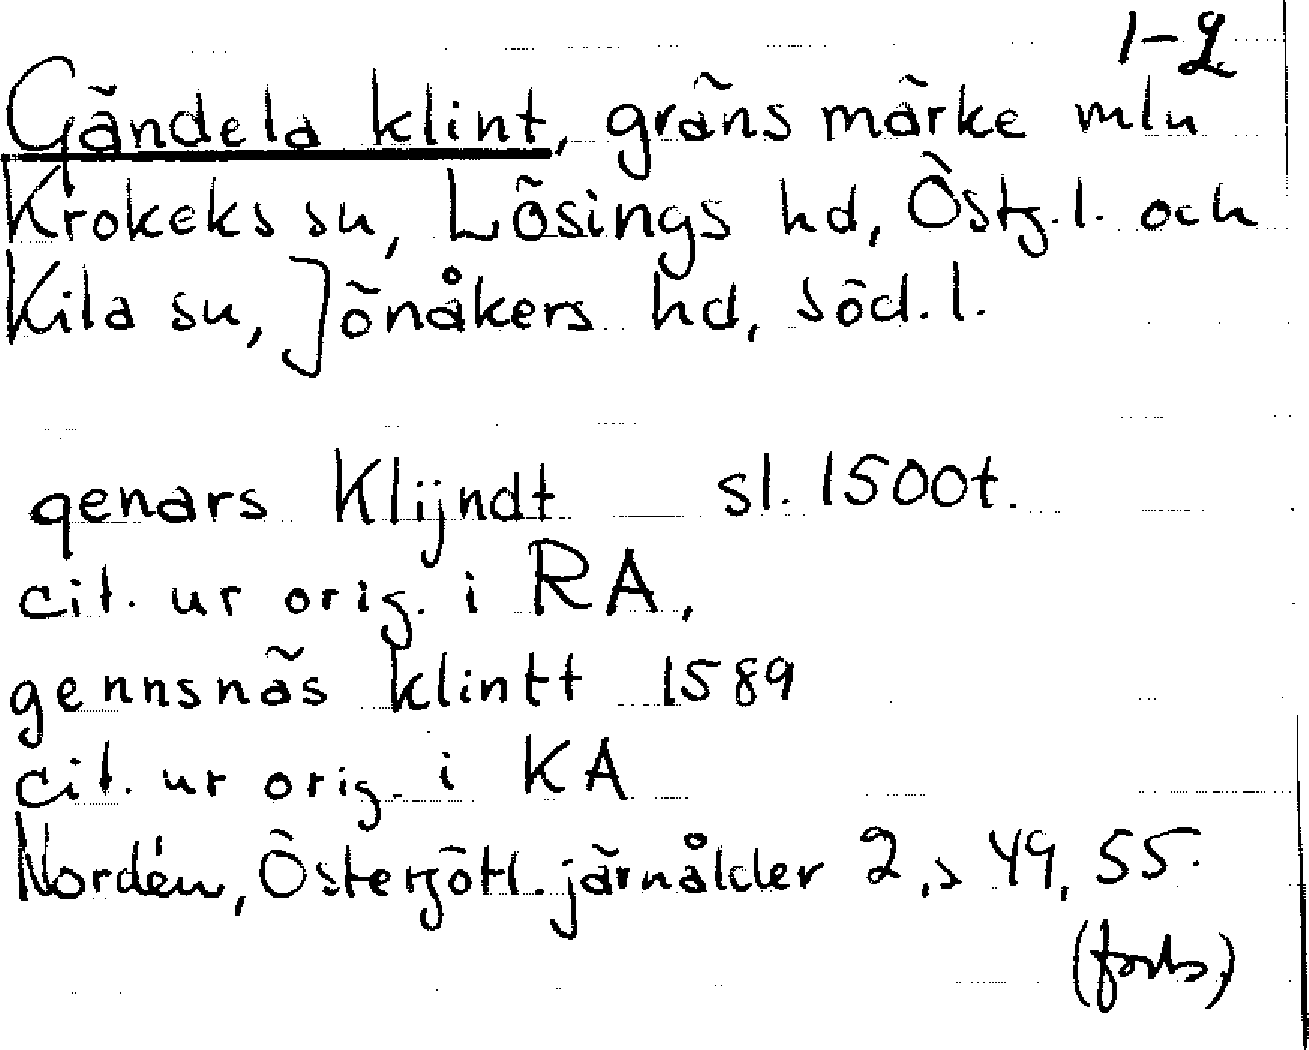 1-2
Gändela klint, gräns märke mln
Krokeks sn, Lösings hd, Östg.l. och
Kila sn, Jönåkers hd, Söd.l.
genars Klijndt sl. 1500t.
cit. ur orig. i RA,
gennsnäs klintt 1589
cit. ur orig. i KA
Nordén, Östergötl. järnålder 2, s 49, 55.
(forts.)